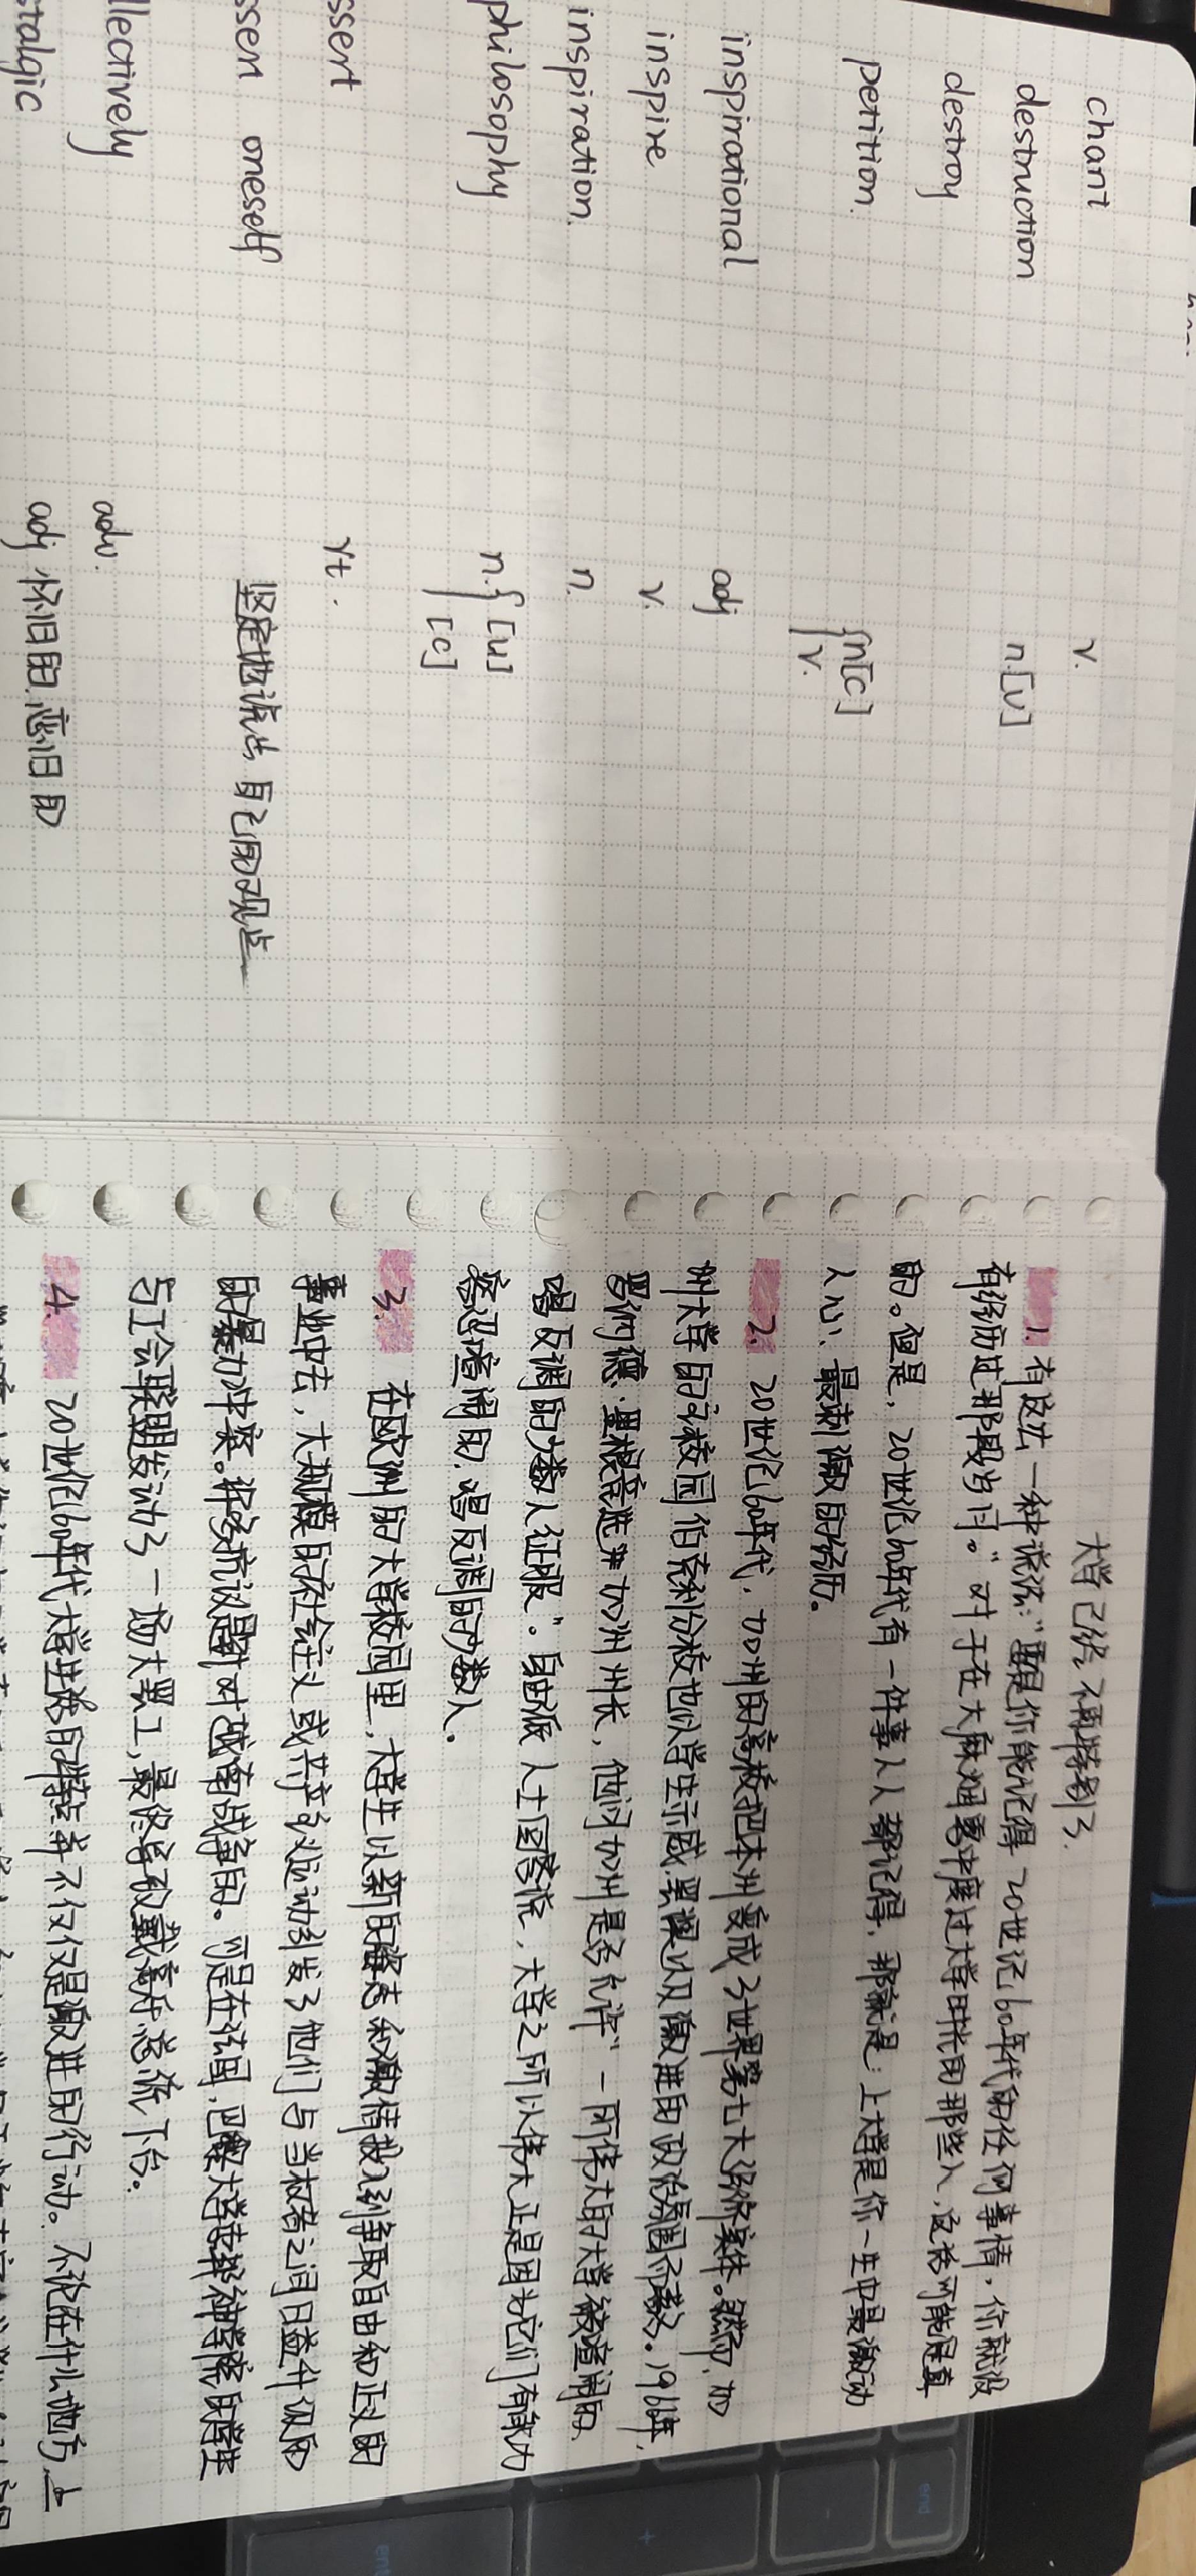 chant v.
destruction n.[u]
destroy
petition. n[c]
v.
inspirational adj
inspire v.
inspiration. n.
philosophy n. [u]
[c]
ssert vt.
ssert oneself 坚定地说出 自己的观点
llectively adv.
stalgic adj 怀旧的,恋旧的
大学已经不再特别了.
1. 有这么一种说法:"要是你能记得 20世纪60年代的任何事情,你就没
有经历过那段岁月。"对于在大麻烟雾中度过大学时光的那些人,这话可能是真
的。但是,20世纪60年代有一件事人人都记得,那就是:上大学是你一生中最激动
人心、最刺激的经历。
2. 20世纪60年代,加州的高校把本州变成了世界第七大经济实体。然而,加
州大学的主校园伯克利分校也以学生示威、罢课以及激进的政治氛围而著名。1966年,
罗纳德·里根竞选 加州州长,他问加州是否允许"一所伟大的大学被喧闹的、
唱反调的少数人征服"。自由派人士回答说,大学之所以伟大正是因为它们有能力
容忍喧闹的、唱反调的少数人.
3. 在欧洲的大学校园里,大学生以新的姿态和激情投入到争取自由和正义的
事业中去,大规模的社会主义或共产主义运动引发了他们与当权者之间日益升级的
的暴力冲突。许多抗议是针对越南战争的。可是在法国,巴黎大学 的学生
与工会联盟发动了一场大罢工,最终导致戴高乐总统下台。
4. 20世纪60年代大学生活的特点并不仅仅是激进的行动。不论在什么地方,上
end
ent
+
-